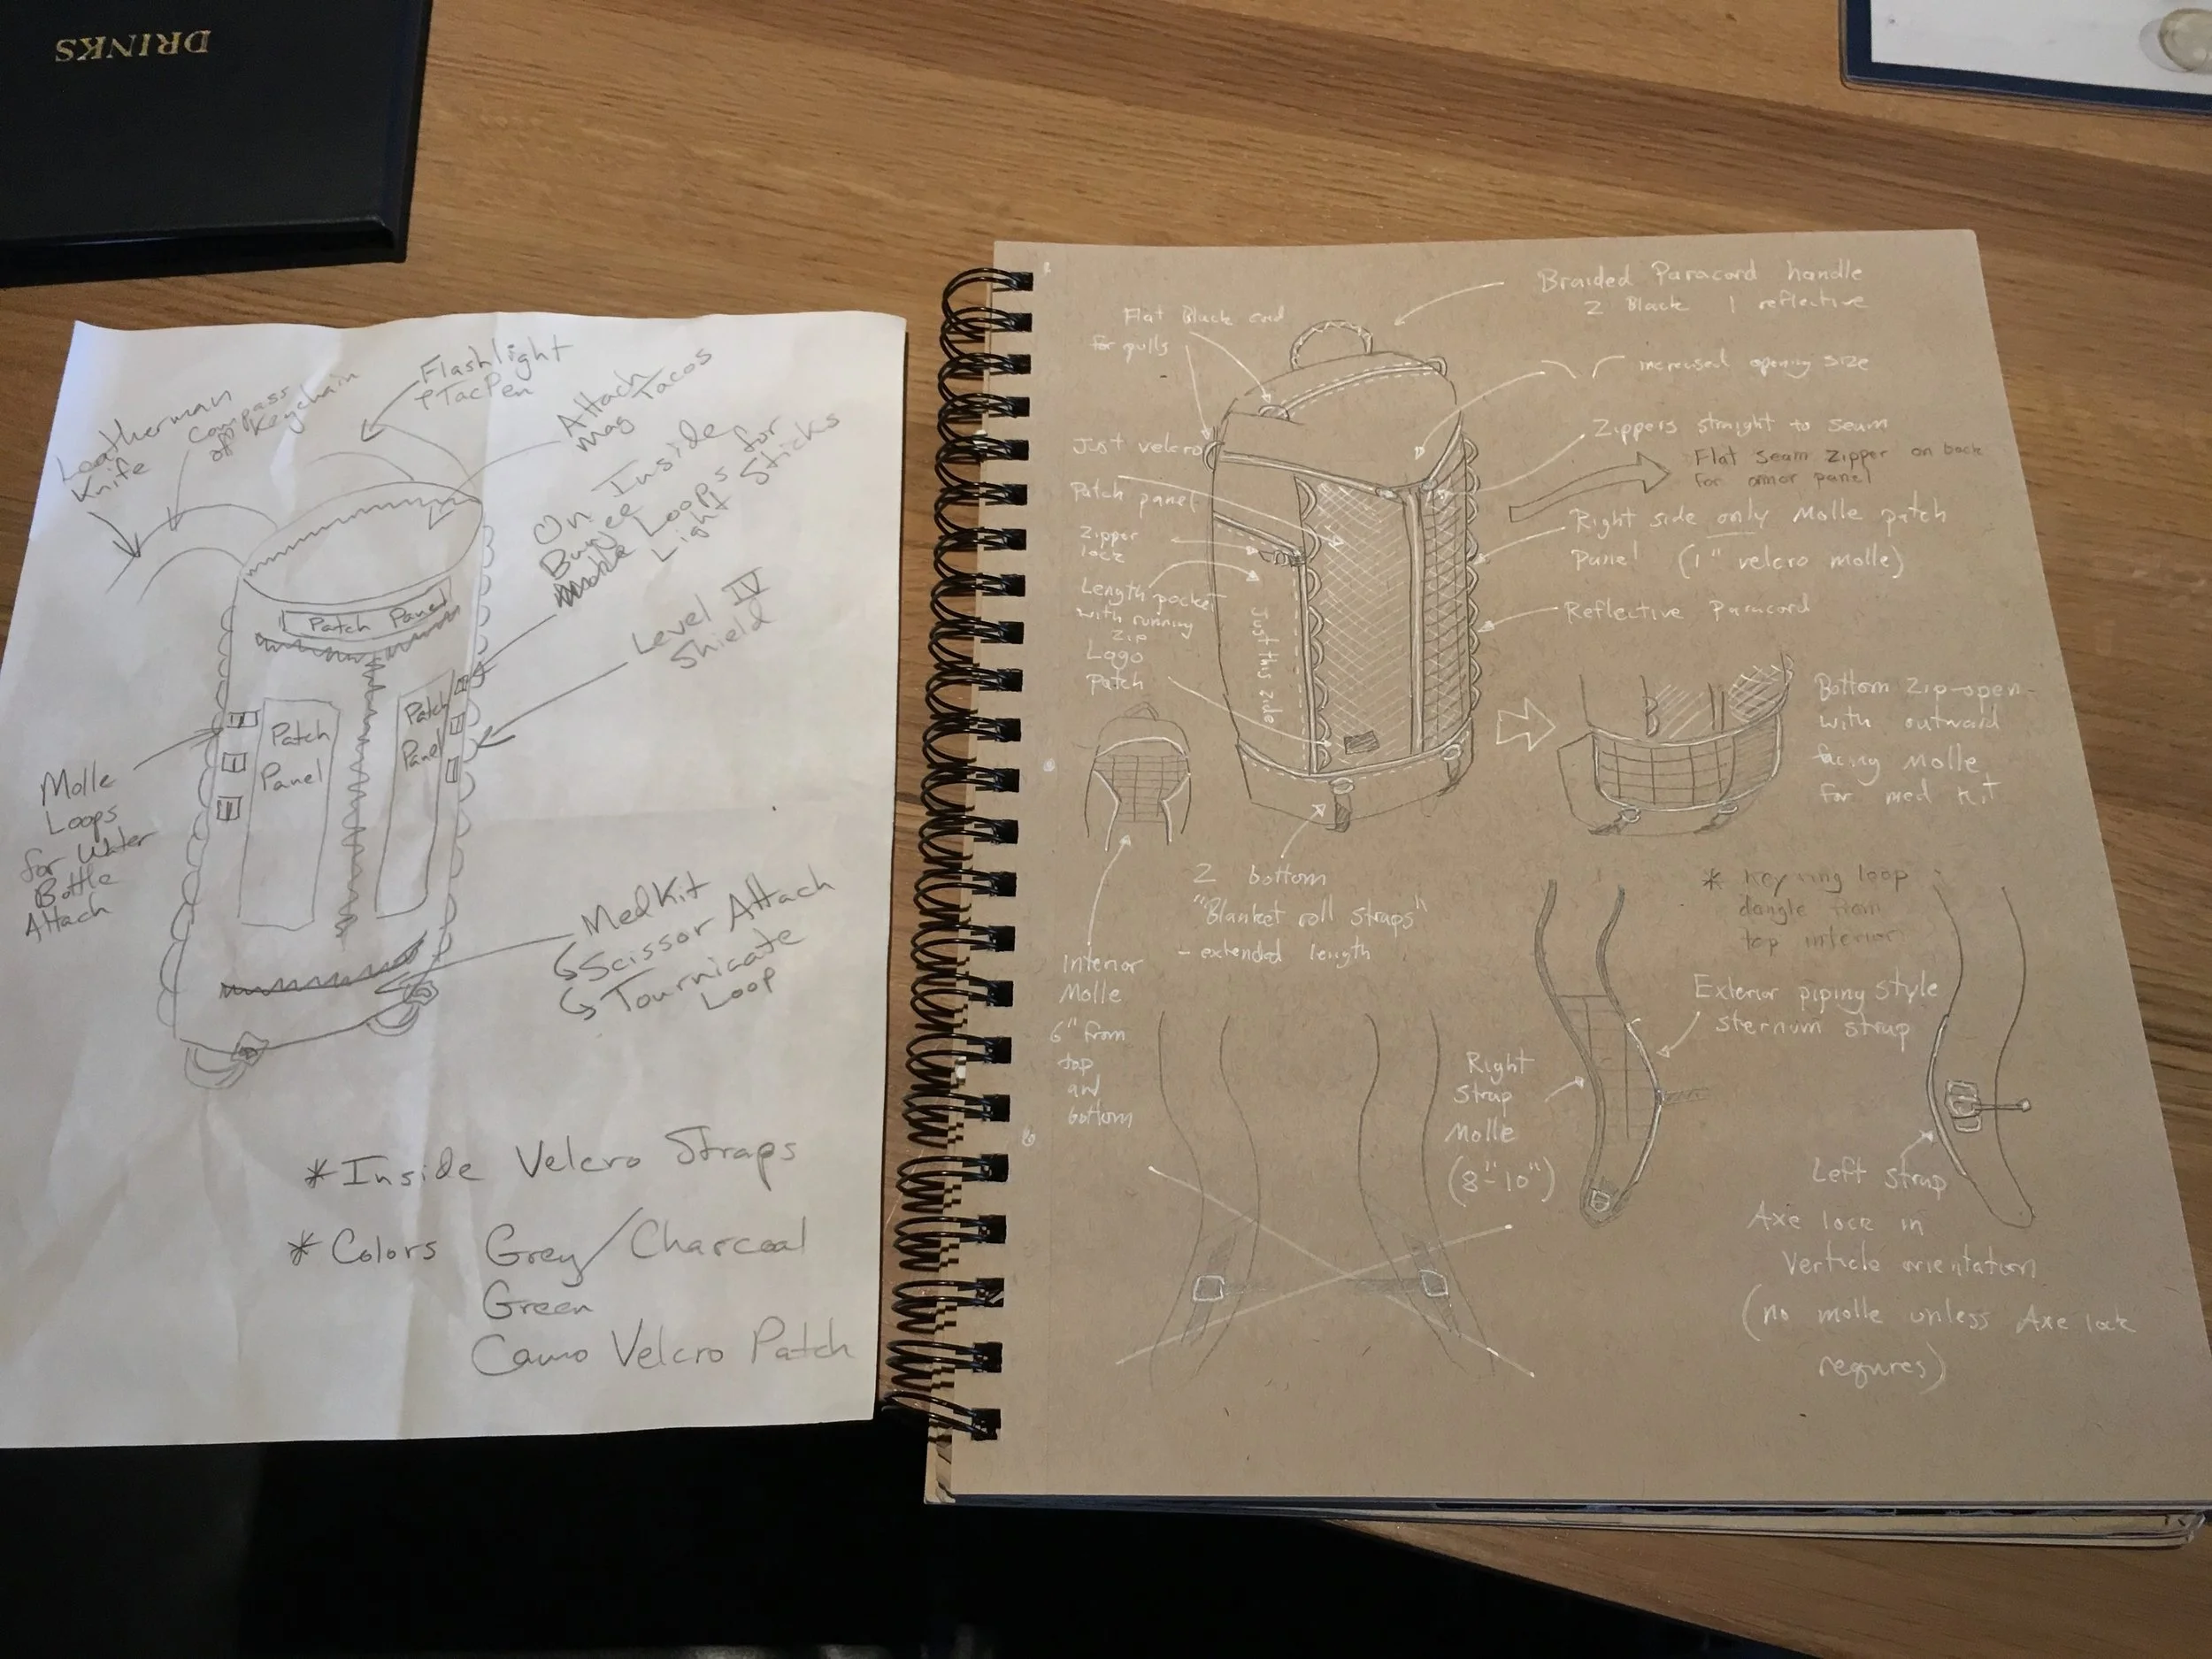 DRINKS
Leatherman
Knife
Compass
off Keychain
Flashlight
&TacPen
Attach
Mag Tacos
On Inside
Bungee Loops for
Light Sticks
Level IV
Shield
Patch Panel
Patch
Panel
Patch
Panel
Molle
Loops
for Water
Bottle
Attach
MedKit
Scissor Attach
Tournicate
Loop
*Inside Velcro Straps
*Colors Grey/Charcoal
Green
Camo Velcro Patch
Braided Paracord handle
2 Black 1 reflective
Flat Black cord
for pulls
increased opening size
Zippers straight to seam
Flat seam zipper on back
for armor panel
Just velcro
Patch panel
Zipper
lock
Length pocket
with running
zip
Logo
Patch
Just this side
Right side only Molle patch
Panel (1" velcro molle)
Reflective Paracord
Bottom zip-open
with outward
facing Molle
for med kit
2 bottom
"Blanket roll straps"
- extended length
Interior
Molle
6" from
top
and
bottom
* Key ring loop
dangle from
top interior
Exterior piping style
sternum strap
Right
Strap
Molle
(8"-10")
Left strap
Axe lock in
Verticle orientation
(no molle unless Axe lock
requires)